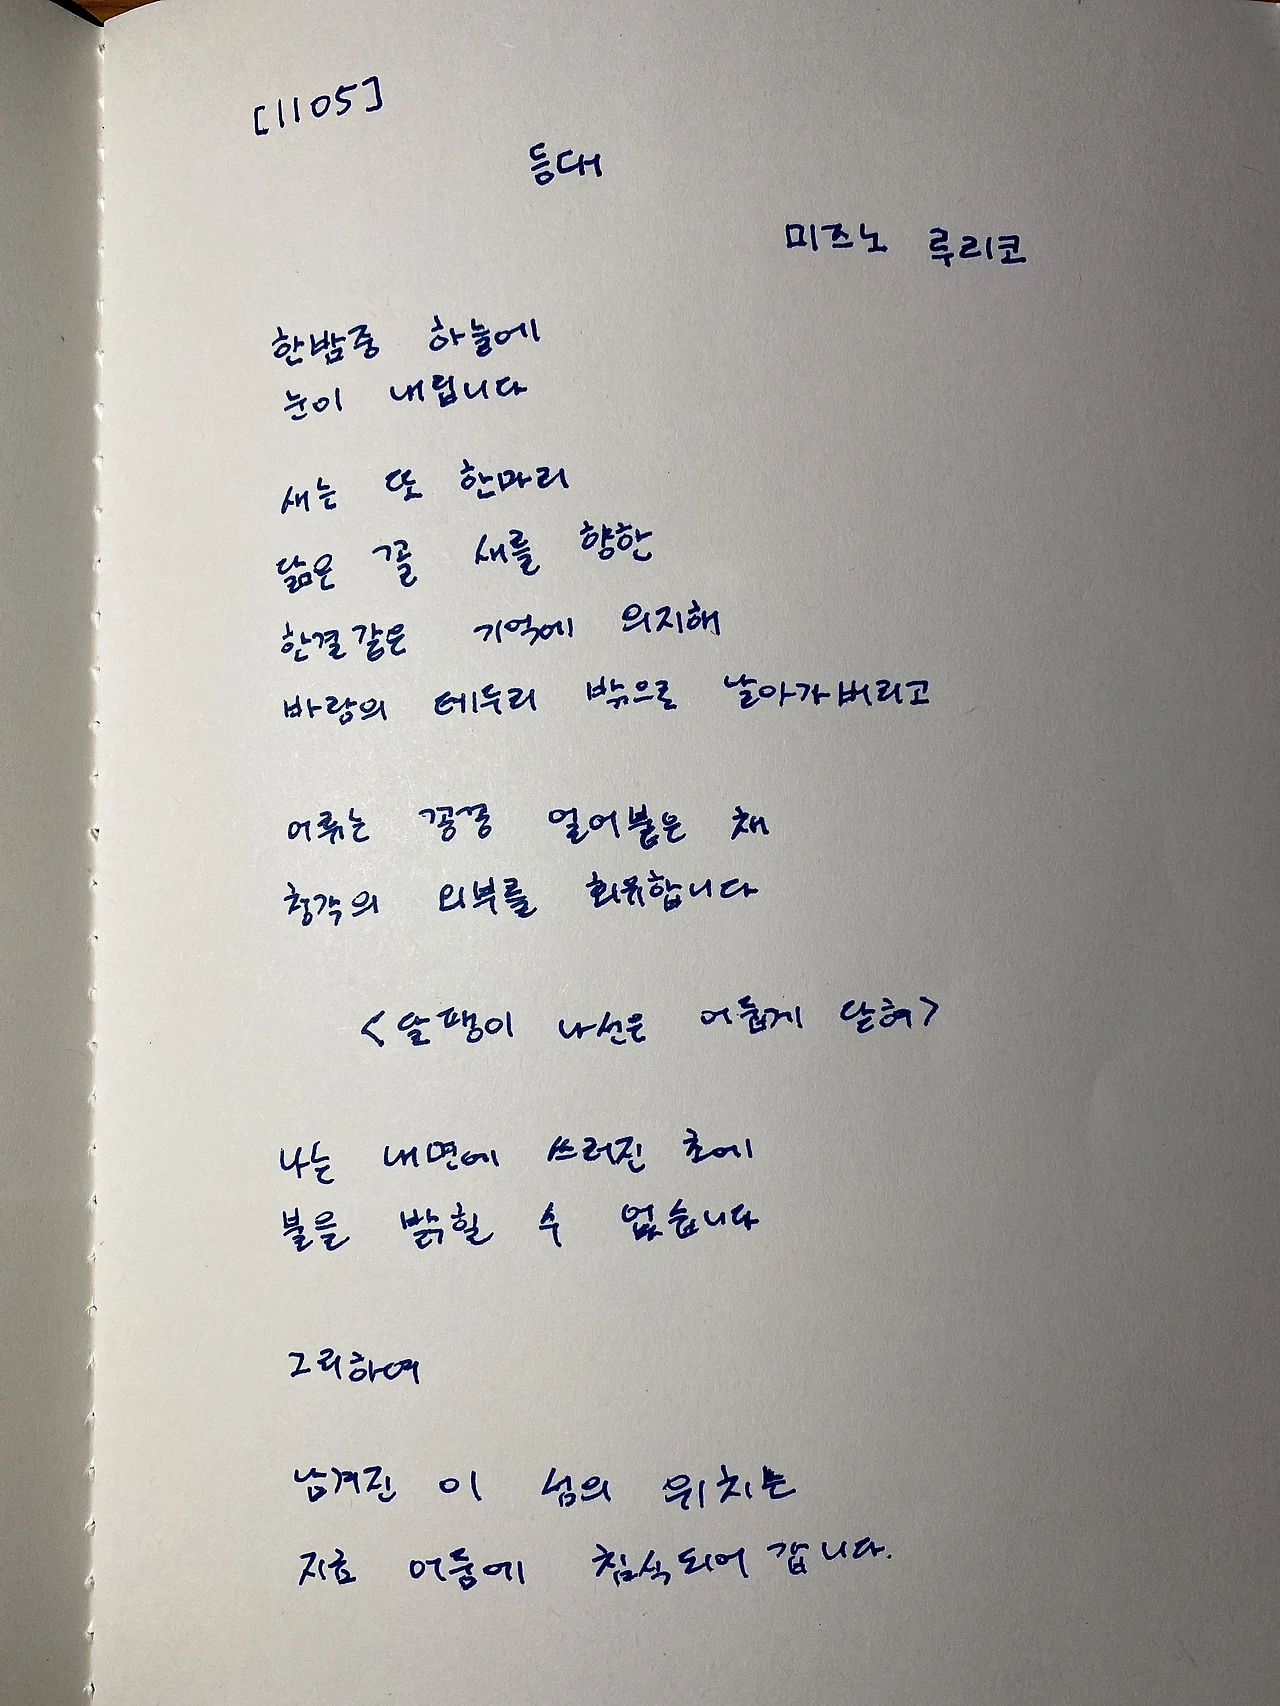 [1105]
등대
미즈노 루리코
한밤중 하늘에
눈이 내립니다
새는 또 한마리
닮은 꼴 새를 향한
한결같은 기억에 의지해
바람의 테두리 밖으로 날아가버리고
어류는 꽁꽁 얼어붙은 채
청각의 외부를 회유합니다
<달팽이 나선은 어둡게 닫혀>
나는 내면에 쓰러진 초에
불을 밝힐 수 없습니다
그리하여
남겨진 이 섬의 위치는
지효 어둠에 침식되어 갑니다.